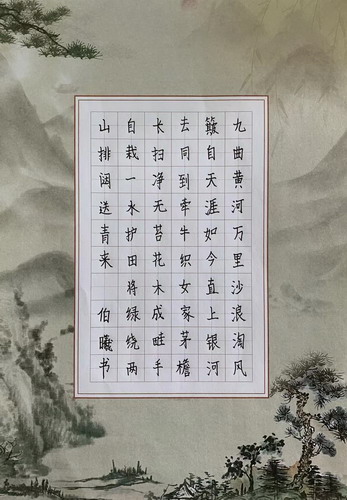 九曲黄河万里沙浪淘风
簸自天涯如今直上银河
去同到牵牛织女家茅檐
长扫净无苔花木成畦手
自栽一水护田将绿绕两
山排闼送青来 伯曦书